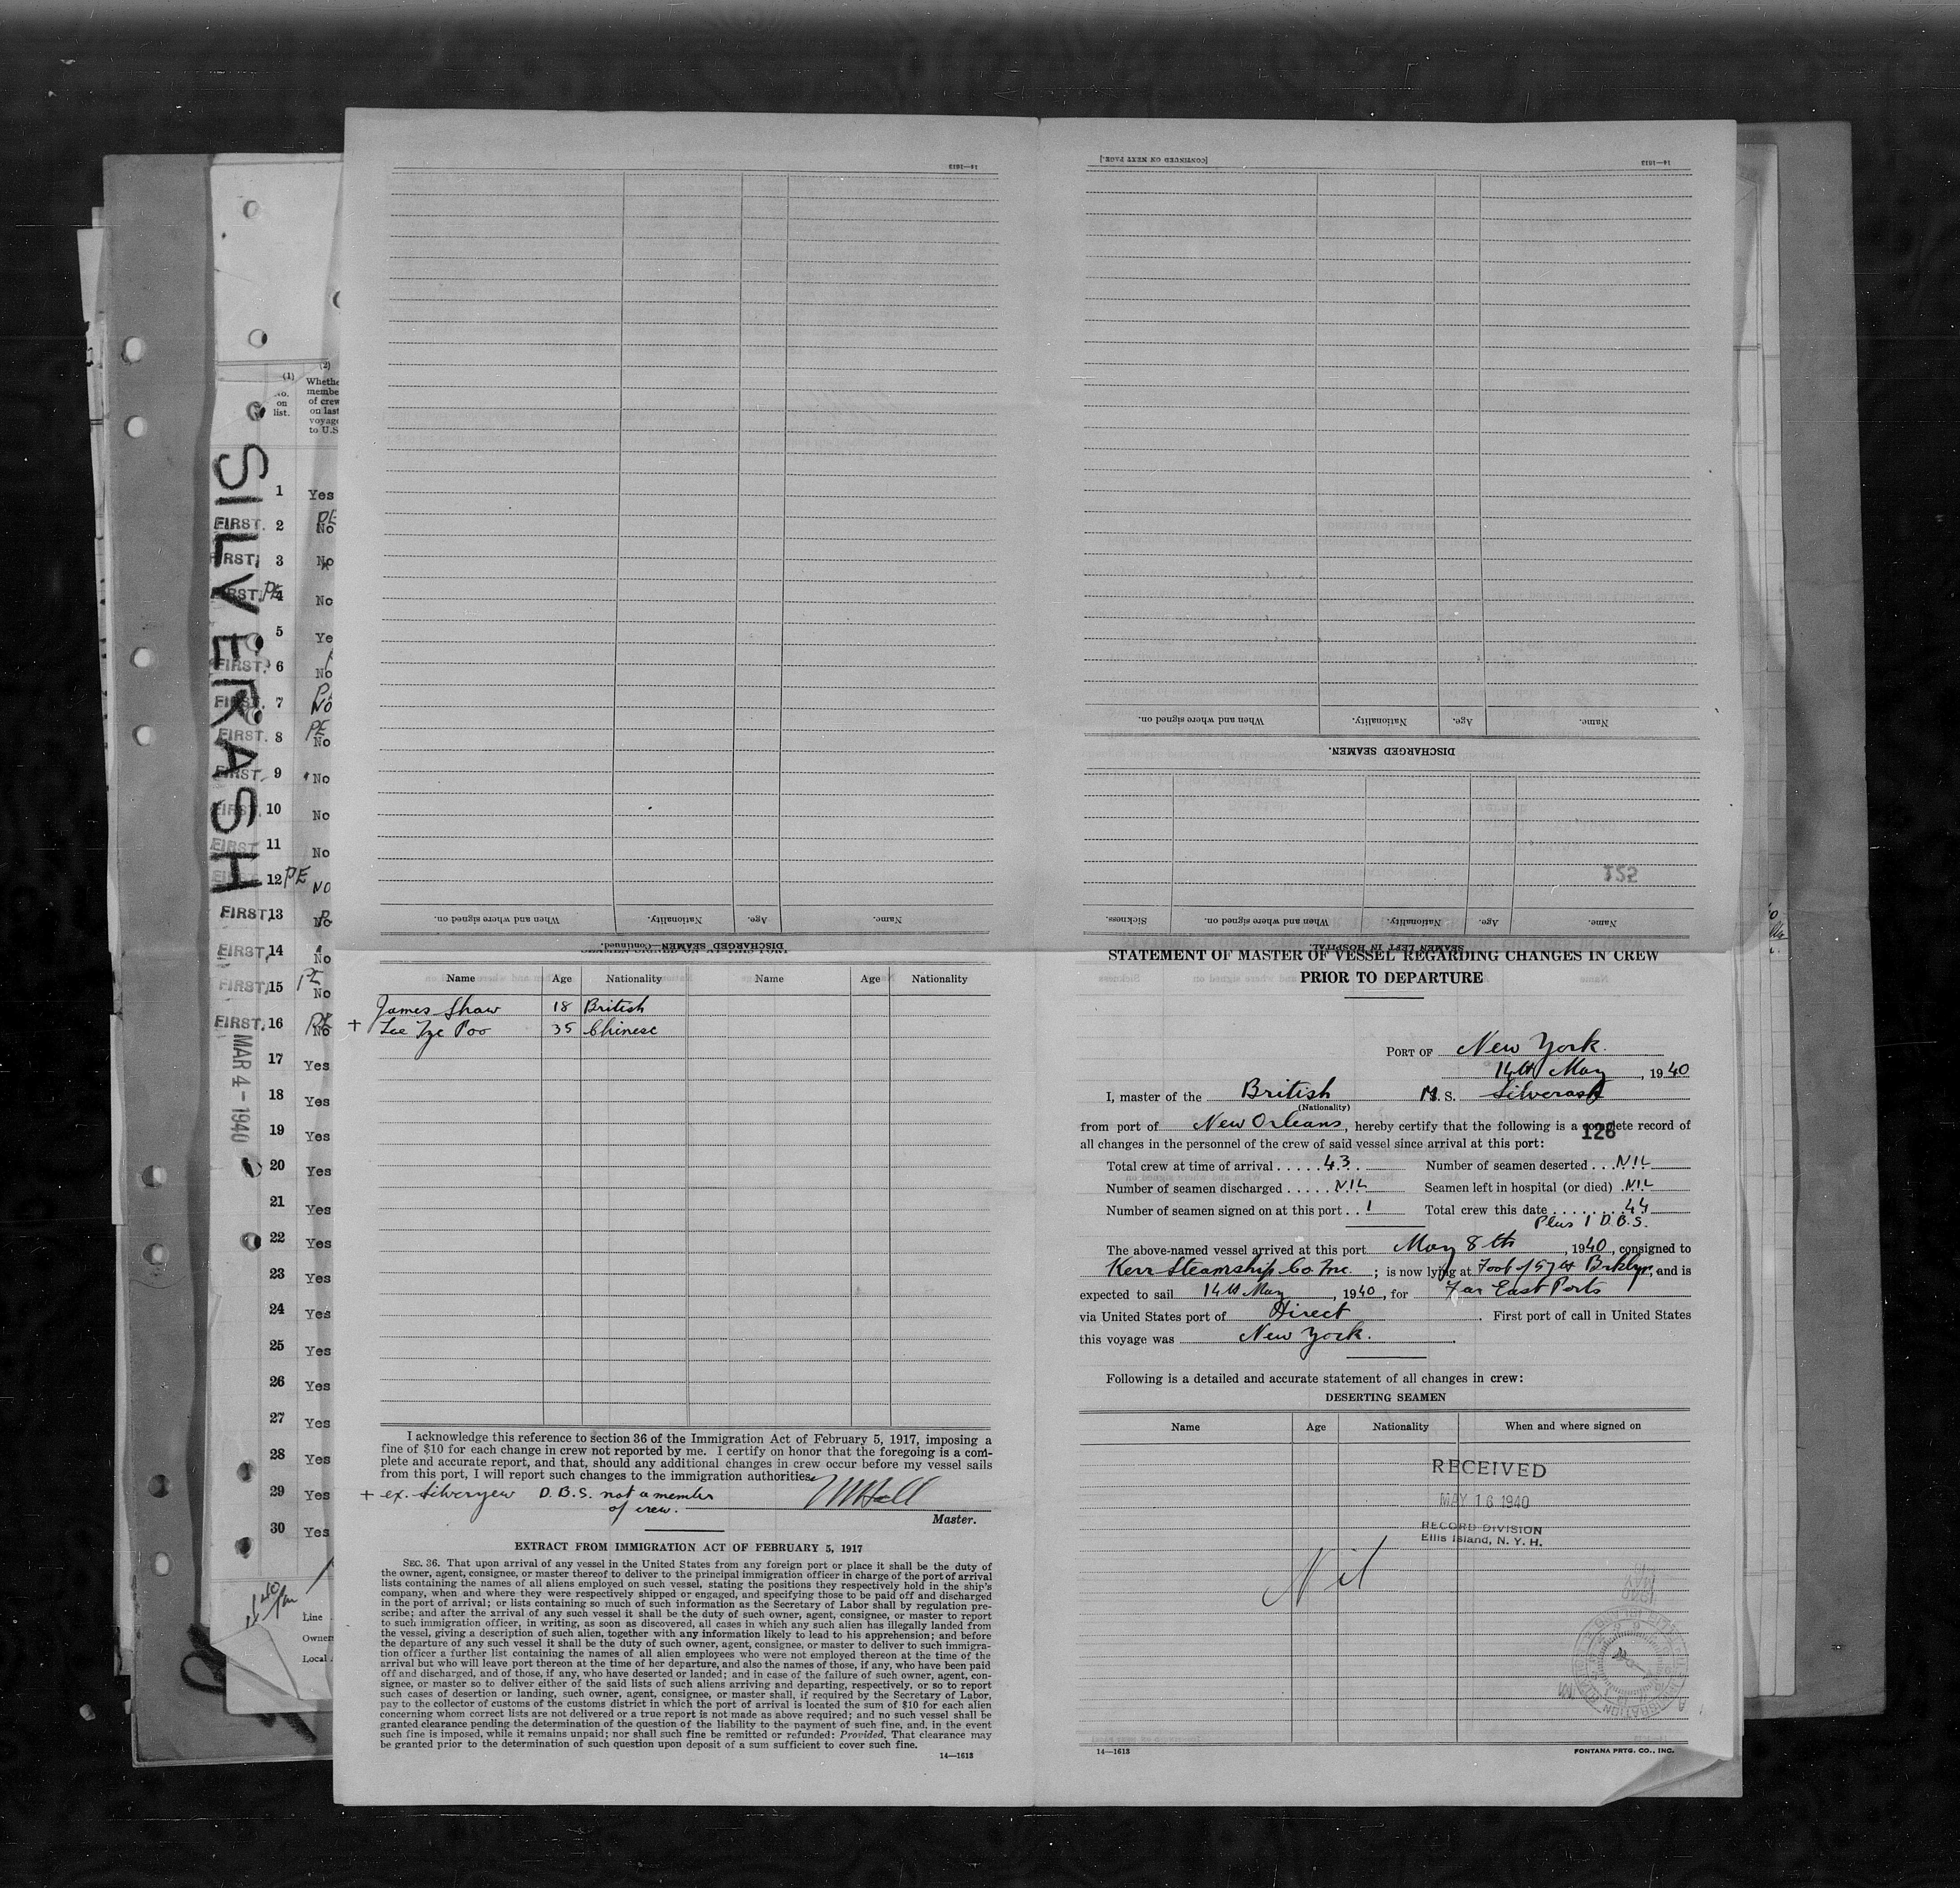 14—1613
[CONTINUED ON NEXT PAGE.]
14—1613
(1)
No.
on
list.
(2)
Whethe
membe
of crew
on last
voyage
to U.S
SILVERASH
1 Yes
FIRST. 2 PE No
FIRST. 3 No
FIRST. PE 4 No
5 Ye
FIRST. 6 No
FIRST. 7 No
FIRST. 8 PE No
FIRST. 9 No
FIRST. 10 No
FIRST 11 No
FIRST 12 PE NO
FIRST. 13 No
FIRST. 14 No
FIRST. 15 PE No
FIRST. 16 PE No
MAR 4 - 1940
17 Yes
18 Yes
19 Yes
20 Yes
21 Yes
22 Yes
23 Yes
24 Yes
25 Yes
26 Yes
27 Yes
28 Yes
29 Yes
30 Yes
Line
Owners
Local
Name. Age. Nationality. When and where signed on.
DISCHARGED SEAMEN—Continued.
Name. Age. Nationality. When and where signed on.
DISCHARGED SEAMEN.
Name. Age. Nationality. When and where signed on. Sickness.
SEAMEN LEFT IN HOSPITAL.
Name Age Nationality Name Age Nationality
James Shaw 18 British
+ Lee Tze Poo 35 Chinese
I acknowledge this reference to section 36 of the Immigration Act of February 5, 1917, imposing a
fine of $10 for each change in crew not reported by me. I certify on honor that the foregoing is a com-
plete and accurate report, and that, should any additional changes in crew occur before my vessel sails
from this port, I will report such changes to the immigration authorities.
+ ex. Silveryew D.B.S. not a member
of crew.
Master.
EXTRACT FROM IMMIGRATION ACT OF FEBRUARY 5, 1917
SEC. 36. That upon arrival of any vessel in the United States from any foreign port or place it shall be the duty of
the owner, agent, consignee, or master thereof to deliver to the principal immigration officer in charge of the port of arrival
lists containing the names of all aliens employed on such vessel, stating the positions they respectively hold in the ship's
company, when and where they were respectively shipped or engaged, and specifying those to be paid off and discharged
in the port of arrival; or lists containing so much of such information as the Secretary of Labor shall by regulation pre-
scribe; and after the arrival of any such vessel it shall be the duty of such owner, agent, consignee, or master to report
to such immigration officer, in writing, as soon as discovered, all cases in which any such alien has illegally landed from
the vessel, giving a description of such alien, together with any information likely to lead to his apprehension; and before
the departure of any such vessel it shall be the duty of such owner, agent, consignee, or master to deliver to such immigra-
tion officer a further list containing the names of all alien employees who were not employed thereon at the time of the
arrival but who will leave port thereon at the time of her departure, and also the names of those, if any, who have been paid
off and discharged, and of those, if any, who have deserted or landed; and in case of the failure of such owner, agent, con-
signee, or master so to deliver either of the said lists of such aliens arriving and departing, respectively, or so to report
such cases of desertion or landing, such owner, agent, consignee, or master shall, if required by the Secretary of Labor,
pay to the collector of customs of the customs district in which the port of arrival is located the sum of $10 for each alien
concerning whom correct lists are not delivered or a true report is not made as above required; and no such vessel shall be
granted clearance pending the determination of the question of the liability to the payment of such fine, and, in the event
such fine is imposed, while it remains unpaid; nor shall such fine be remitted or refunded: Provided, That clearance may
be granted prior to the determination of such question upon deposit of a sum sufficient to cover such fine.
14—1613
STATEMENT OF MASTER OF VESSEL REGARDING CHANGES IN CREW
PRIOR TO DEPARTURE
PORT OF New York.
14th May, 1940
I, master of the British M. S. Silverash
(Nationality)
from port of New Orleans, hereby certify that the following is a complete record of
126
all changes in the personnel of the crew of said vessel since arrival at this port:
Total crew at time of arrival 43 Number of seamen deserted NIL
Number of seamen discharged NIL Seamen left in hospital (or died) NIL
Number of seamen signed on at this port 1 Total crew this date 44
Plus 1 D.B.S.
The above-named vessel arrived at this port May 8th, 1940, consigned to
Kerr Steamship Co Inc. ; is now lying at Foot of 57 St Brklyn, and is
expected to sail 14th May, 1940, for Far East Ports
via United States port of Direct. First port of call in United States
this voyage was New York.
Following is a detailed and accurate statement of all changes in crew:
DESERTING SEAMEN
Name Age Nationality When and where signed on
RECEIVED
MAY 16 1940
RECORD DIVISION
Ellis Island, N. Y. H.
Nil
14—1613
FONTANA PRTG. CO., INC.